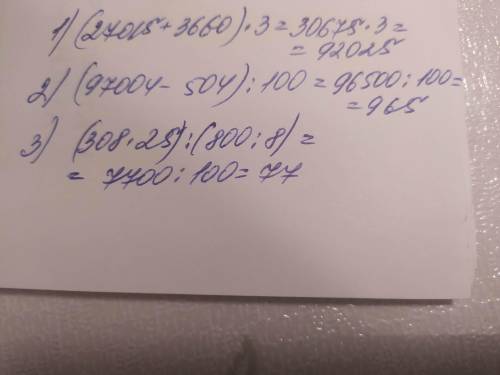 1) (27015+3660)·3=30675·3=
=92025
2) (97004-504):100=96500:100=
=965
3) (308·25):(800:8)=
= 7700:100=77